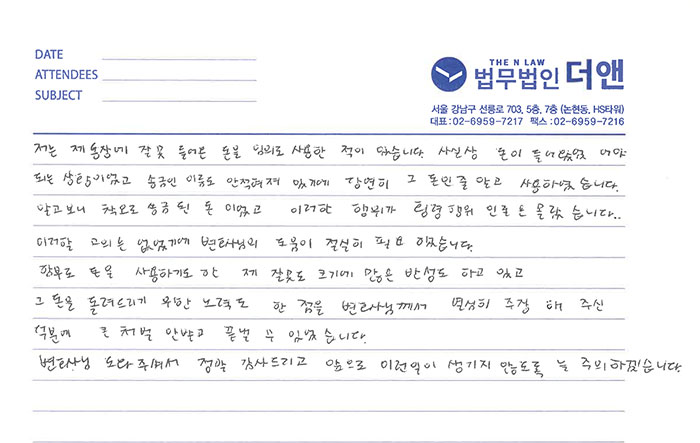 DATE
ATTENDEES
SUBJECT
THE N LAW
법무법인 더앤
서울 강남구 선릉로 703, 5층, 7층 (논현동, HS타워)
대표 : 02-6959-7217 팩스 : 02-6959-7216
저는 제 통장에 잘못 들어온 돈을 임의로 사용한 적이 있습니다. 사실상 돈이 들어와있어
되는 상황이었고 송금인 이름도 안적혀져 있기에 당연히 그 돈인줄 알고 사용하였습니다.
알고보니 착오로 송금 된 돈 이었고 이러한 행위가 횡령행위 인줄은 몰랐습니다..
이러한 고의는 없었기에 변호사님의 도움이 절실히 필요 했습니다.
함부로 돈을 사용하기도 한 제 잘못도 크기에 많은 반성도 하고 있고
그 돈을 돌려드리기 위한 노력도 한 점을 변호사님께서 열심히 주장 해 주신
덕분에 큰 처벌 안받고 끝낼 수 있었습니다.
변호사님 도와주셔서 정말 감사드리고 앞으로 이런일이 생기지 않도록 늘 주의하겠습니다.